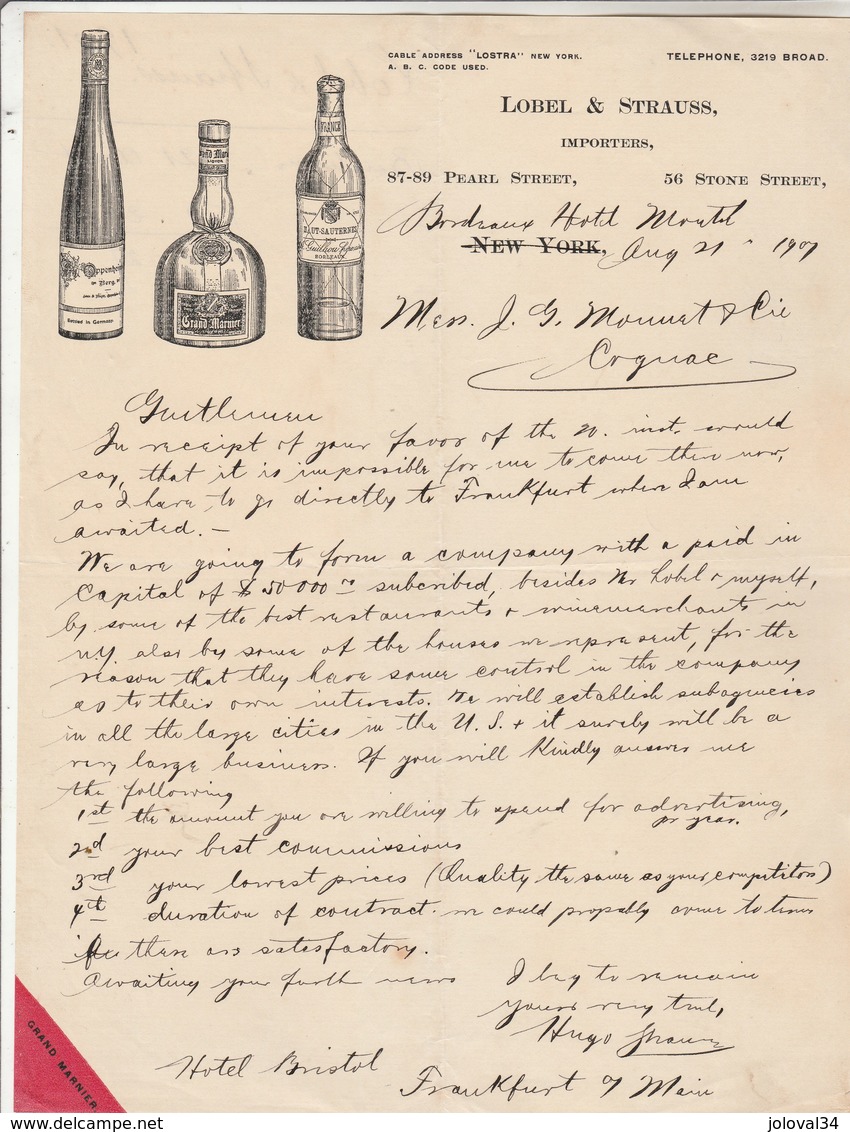 CABLE ADDRESS "LOSTRA" NEW YORK.
A. B. C. CODE USED.
TELEPHONE, 3219 BROAD.
LOBEL & STRAUSS,
IMPORTERS,
87-89 PEARL STREET,
56 STONE STREET,
Bordeaux Hotel Montré
NEW YORK, Aug 21 1907
Mess. J. G. Monnet & Cie
Cognac
Gentlemen
In receipt of your favor of the 20. inst. would
say, that it is impossible for me to come there now,
as I have to go directly to Frankfurt where I am
awaited. —
We are going to form a company with a paid in
Capital of $ 50 000 subcribed, besides Mr Lobel & myself,
by some of the best restaurants & winemerchants in
N.Y. also by some of the houses we represent, for the
reason that they have some control in the company
as to their own interests. We will establish subagencies
in all the large cities in the U. S. & it surely will be a
very large business. If you will kindly answer me
the following
1st the amount you are willing to spend for advertising,
pr year.
2nd your best commissions
3rd your lowest prices (Quality the same as your competitors)
4th duration of contract. we could propably come to terms
if these are satesfactory.
Awaiting your furth news
I beg to remain
yours very truly,
Hugo Strauss
Hotel Bristol
Frankfurt o/ Main
FRANCE
HAUT-SAUTERNES
BORDEAUX
Grand Marnier
LIQUOR
Oppenheim
Bottled in Germany
Grand Marnier
GRAND MARNIER
www.delcampe.net
joloval34